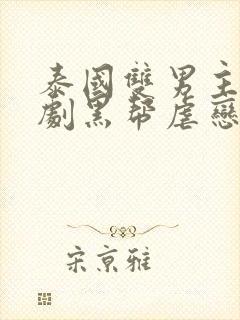 泰國雙男主
劇黑幫虐戀
宋京雅